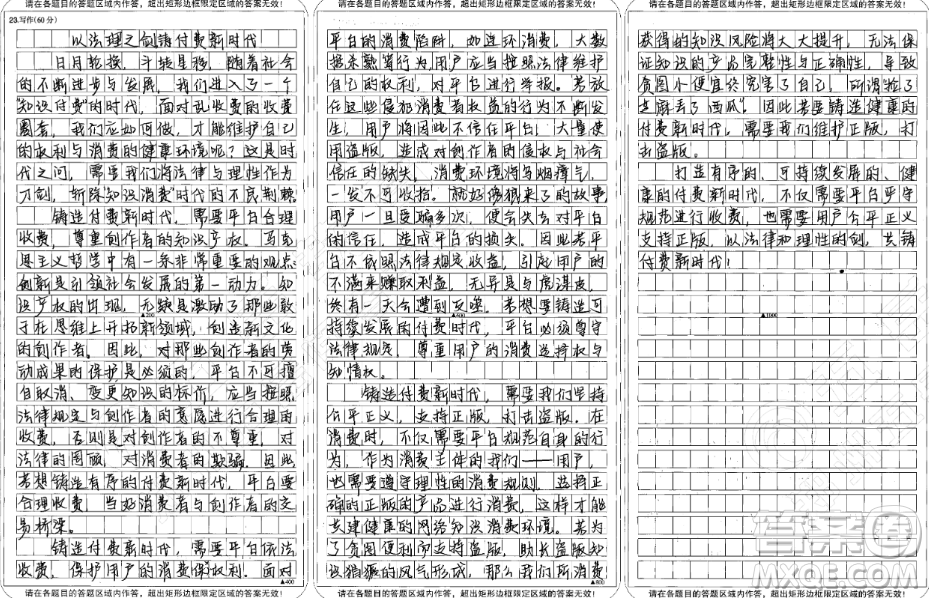 请在各题目的答题区域内作答，超出矩形边框限定区域的答案无效！
23.写作(60分)
以法理之剑铸付费新时代
日月轮换，斗转星移，随着社会
的不断进步与发展，我们进入了一个
知识付费"的时代，面对乱收费的收费
圈套，我们应如何做，才能维护自己
的权利与消费的健康环境呢？这是时
代之问，需要我们将法律与理性作为
刀剑，斩除知识消费"时代的不良荆棘
铸造付费新时代，需要平台合理
收费，尊重创作者的知识产权。马克
思主义哲学中有一条非常重要的观点
创新是引领社会发展的第一动力。知
识产权的出现，无疑是激励了那些敢
于在思维上开拓新领域，创造新文化
的创作者。因此，对那些创作者的劳
动成果的保护是必须的，平台不可擅
自取消、变更知识的标价，应当按照
法律规定与创作者的意愿进行合理的
收费，否则是对创作者的不尊重，对
法律的罔顾，对消费者的欺骗。因此
若想铸造有序的付费新时代，平台要
合理收费，当好消费者与创作者的交
易桥梁。
铸造付费新时代，需要平台依法
收费，保护用户的消费权利。面对
▲400
请在各题目的答题区域内作答，超出矩形边框限定区域的答案无效！
请在各题目的答题区域内作答，超出矩形边框限定区域的答案无效！
平台的消费陷阱，如连环消费，大数
据杀熟等行为，用户应当按照法律维护
自己的权利，对平台进行举报。若放
任这些侵犯消费者权益的行为不断发
生，用户将因此不信任平台，大量使
用盗版，造成对创作者的侵权与社会
信任的缺失，消费环境将乌烟瘴气，
一发不可收拾。就好像狼来了的故事
用户一旦受骗多次，便会失去对平台
的信任，造成平台的损失。因此若平
台不依照法律规定收益，引起用户的
不满来赚取利益，无异是与虎谋皮，
终有一天会遭到反噬。若想要铸造可
持续发展的付费时代，平台必须遵守
法律规定，尊重用户的消费选择权与
知情权。
铸造付费新时代，需要我们坚持
公平正义，支持正版，打击盗版。在
消费时，不仅需要平台规范自身的行
为，作为消费主体的我们——用户，
也需要遵守理性的消费规则，选择正
确的正版的产品进行消费，这样才能
共建健康的网络知识消费环境。若为
了贪图便利而支持盗版，助长盗版知
识猖獗的风气形成，那么我们所消费
▲800
请在各题目的答题区域内作答，超出矩形边框限定区域的答案无效！
请在各题目的答题区域内作答，超出矩形边框限定区域的答案无效！
获得的知识风险将大大提升，无法保
证知识的产品完整性与正确性，导致
贪图小便宜终究害了自己，所谓捡了
芝麻丢了西瓜"，因此若要铸造健康的
付费新时代，需要我们维护正版，打
击盗版。
打造有序的，可持续发展的、健
康的付费新时代，不仅需要平台严守
规范进行收费，也需要用户公平正义
支持正版，以法律和理性的剑，去铸
付费新时代！
▲1000
答案圈
MXQE.COM
请在各题目的答题区域内作答，超出矩形边框限定区域的答案无效！